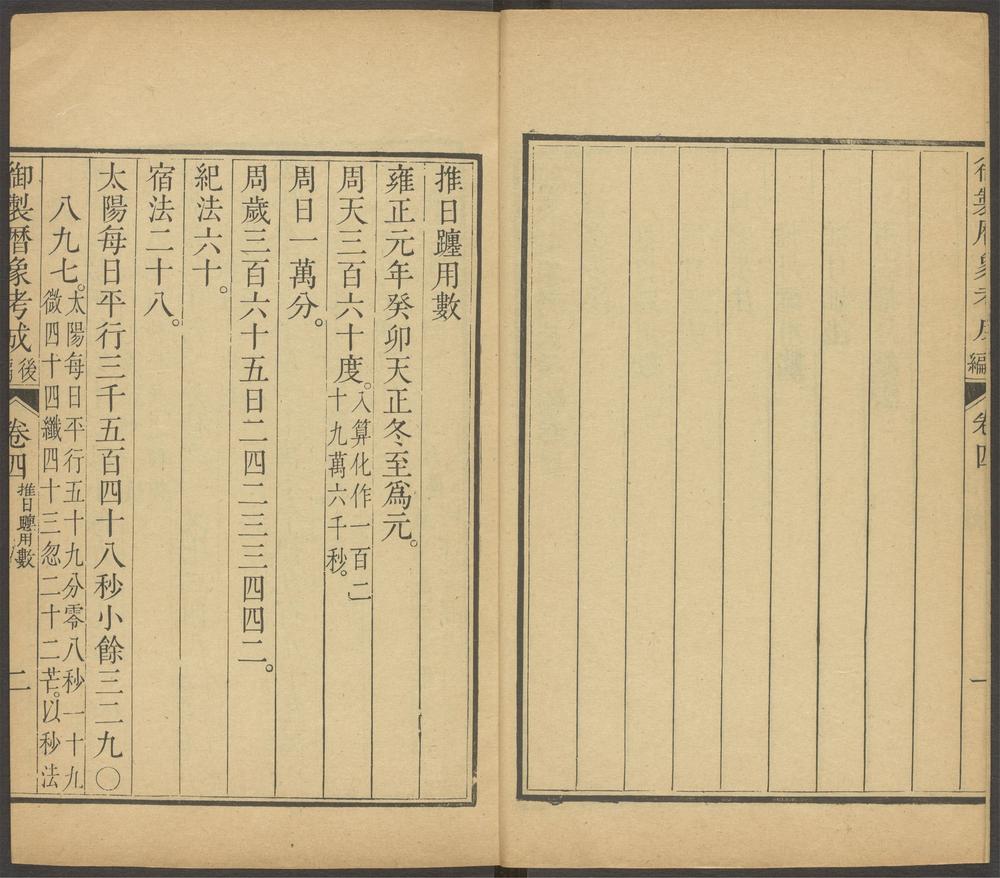 編 卷四 一
推日躔用數
雍正元年癸卯天正冬至爲元。
周天三百六十度。入算化作一百二
十九萬六千秒。
周日一萬分。
周歲三百六十五日二四二三三四四二。
紀法六十。
宿法二十八。
太陽每日平行三千五百四十八秒小餘三二九〇
八九七。太陽每日平行五十九分零八秒一十九
微四十四纖四十三忽二十二芒。以秒法
御製曆象考成後編 卷四 推日躔用數 二